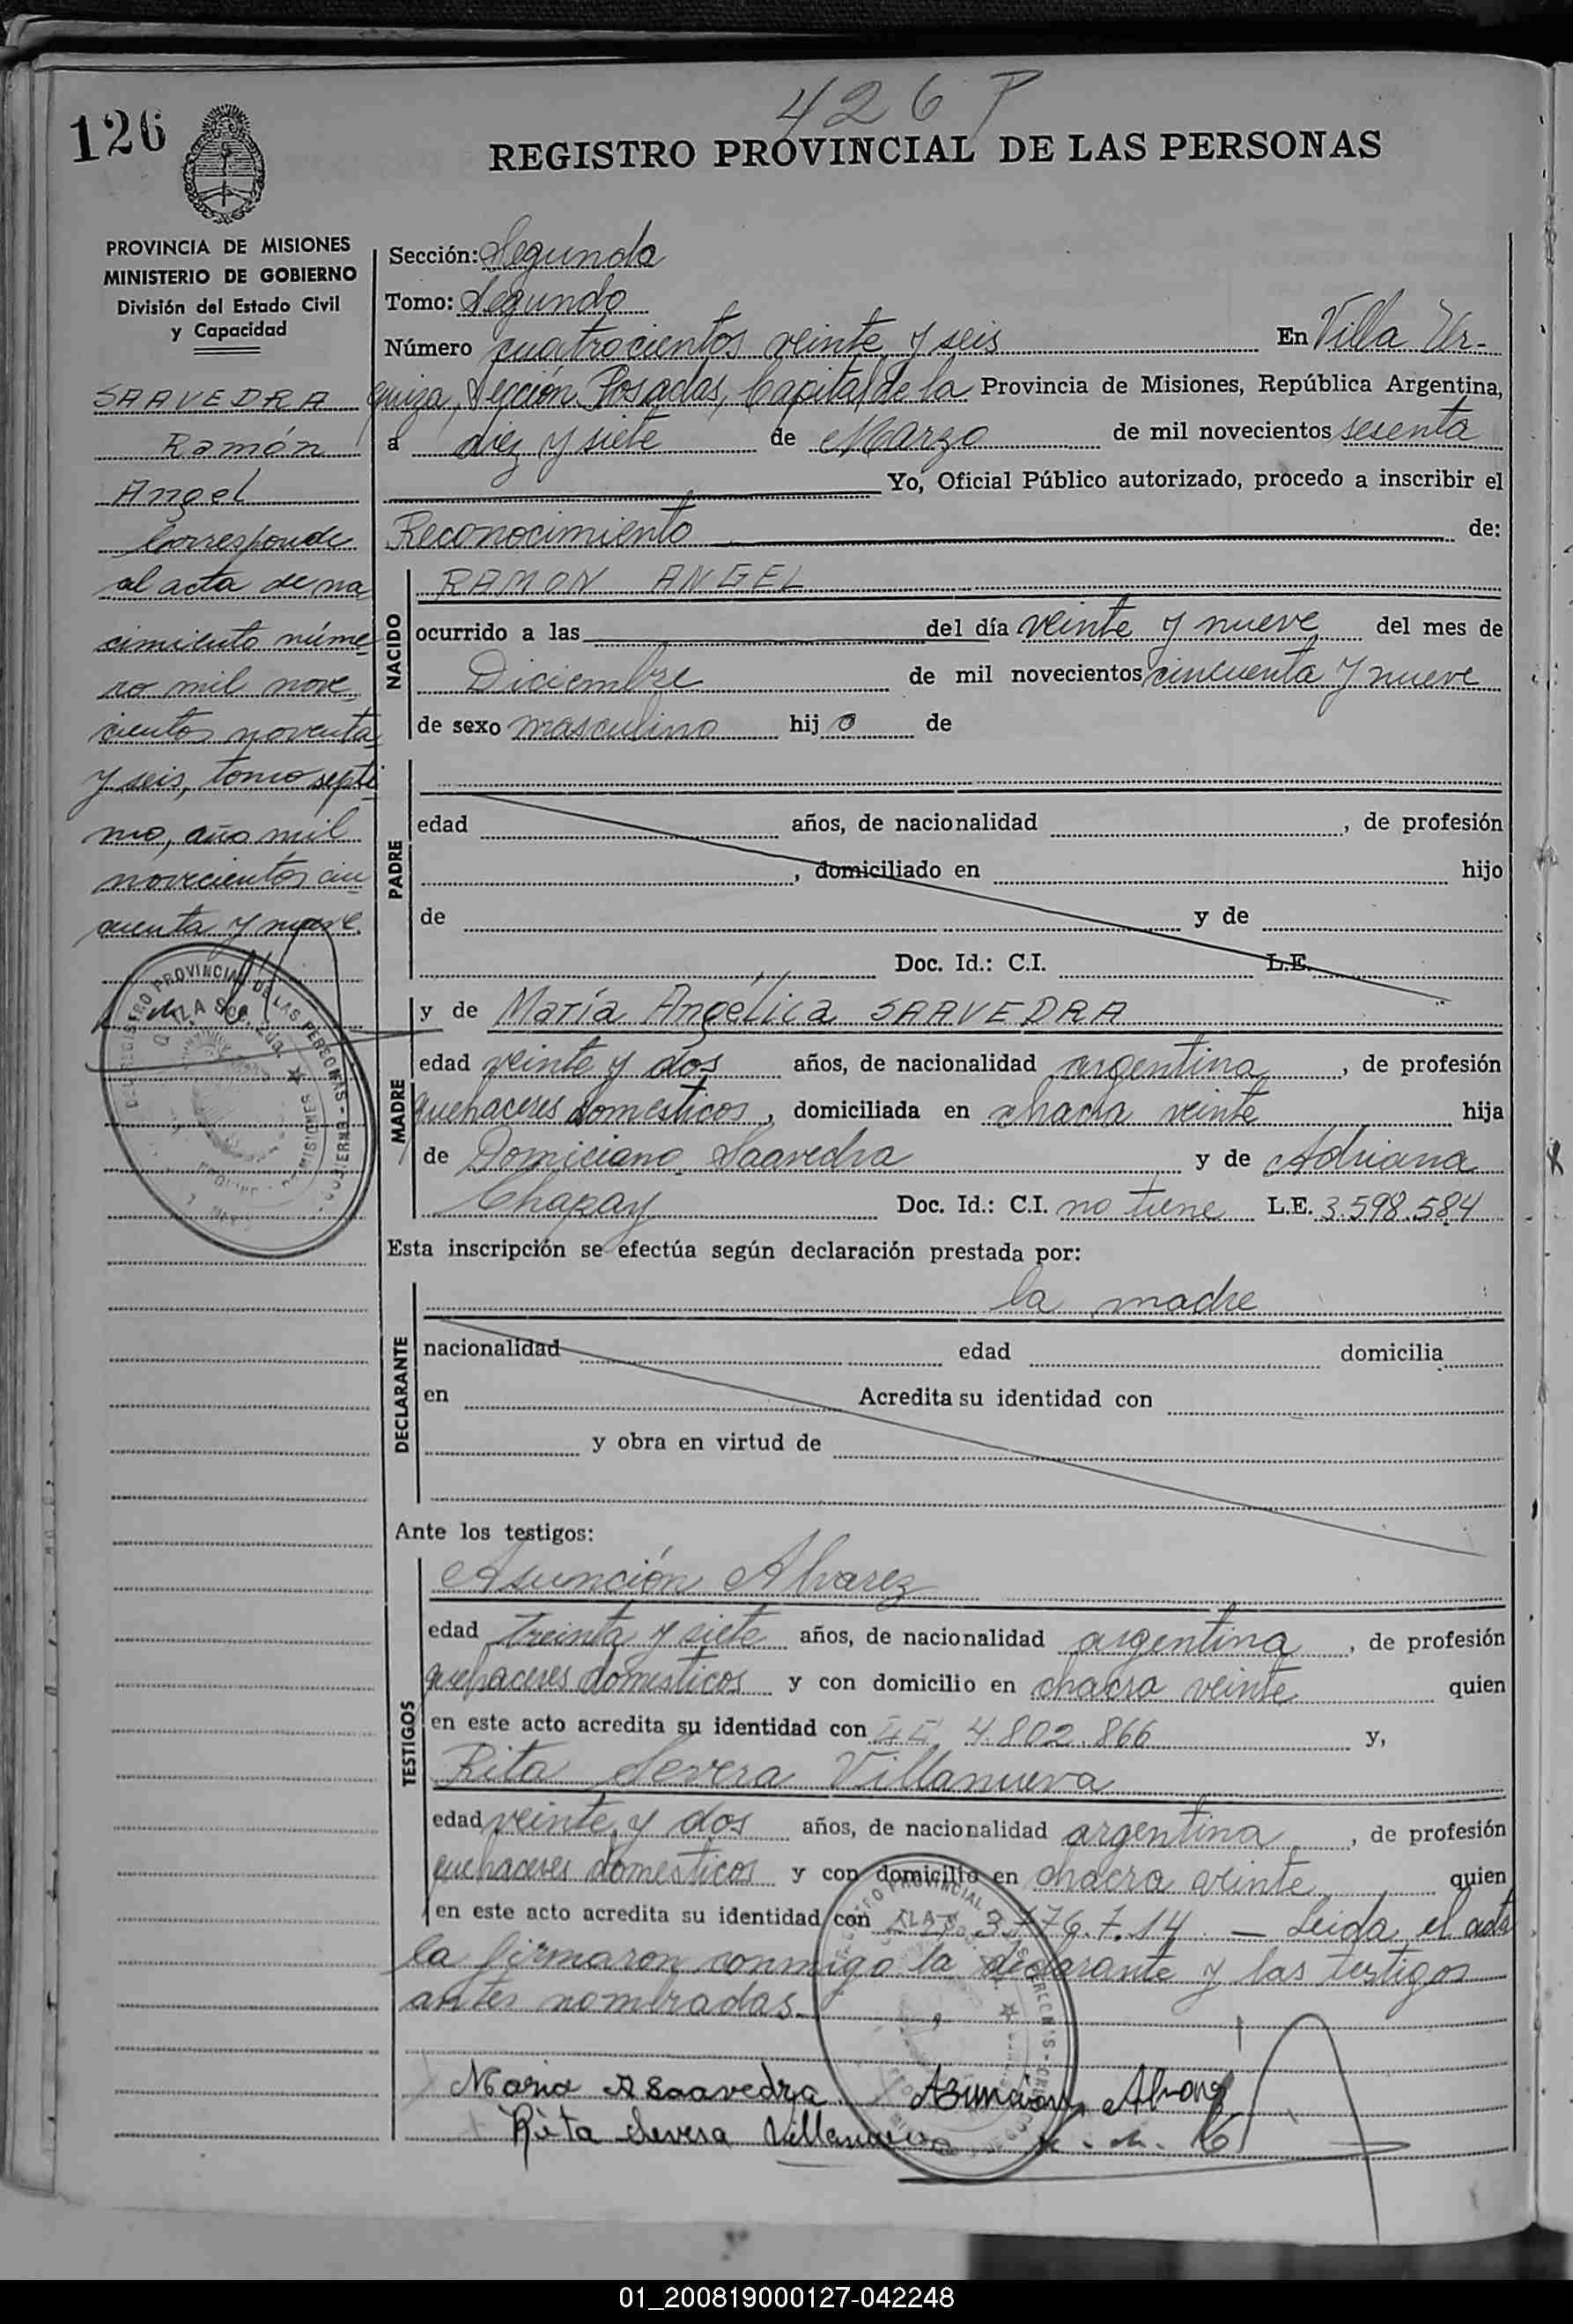 426 P
126
REGISTRO PROVINCIAL DE LAS PERSONAS
PROVINCIA DE MISIONES
MINISTERIO DE GOBIERNO
División del Estado Civil
y Capacidad
SAAVEDRA
Ramón
Angel
Corresponde
al acta de na
cimiento núme
ro mil nove
cientos noventa
y seis, tomo septi
mo, año mil
novecientos cin
cuenta y nueve.
Sección: Segunda
Tomo: Segundo
Número cuatrocientos veinte y seis En Villa Ur-
quiza, Sección Posadas, Capital de la Provincia de Misiones, República Argentina,
a diez y siete de Marzo de mil novecientos sesenta
Yo, Oficial Público autorizado, procedo a inscribir el
Reconocimiento de:
NACIDO
RAMON ANGEL
ocurrido a las del día veinte y nueve del mes de
Diciembre de mil novecientos cincuenta y nueve
de sexo masculino hijo de
PADRE
edad años, de nacionalidad , de profesión
, domiciliado en hijo
de y de
Doc. Id.: C.I. L.E.
MADRE
y de María Angélica SAAVEDRA
edad veinte y dos años, de nacionalidad argentina, de profesión
quehaceres domesticos, domiciliada en chacra veinte hija
de Domiciano Saavedra y de Adriana
Chapay Doc. Id.: C.I. no tiene L.E. 3.598.584
Esta inscripción se efectúa según declaración prestada por:
DECLARANTE
la madre
nacionalidad edad domicilia
en Acredita su identidad con
y obra en virtud de
Ante los testigos:
TESTIGOS
Asunción Alvarez
edad treinta y siete años, de nacionalidad argentina, de profesión
quehaceres domesticos y con domicilio en chacra veinte quien
en este acto acredita su identidad con 4.802.866 y,
Rita Severa Villanueva
edad veinte y dos años, de nacionalidad argentina, de profesión
quehaceres domesticos y con domicilio en chacra veinte quien
en este acto acredita su identidad con — Leida el acta
la firmaron conmigo la declarante y las testigos
antes nombradas.
Maria A Saavedra Asunción Alvarez
Rita Severa Villanueva
01_200819000127-042248